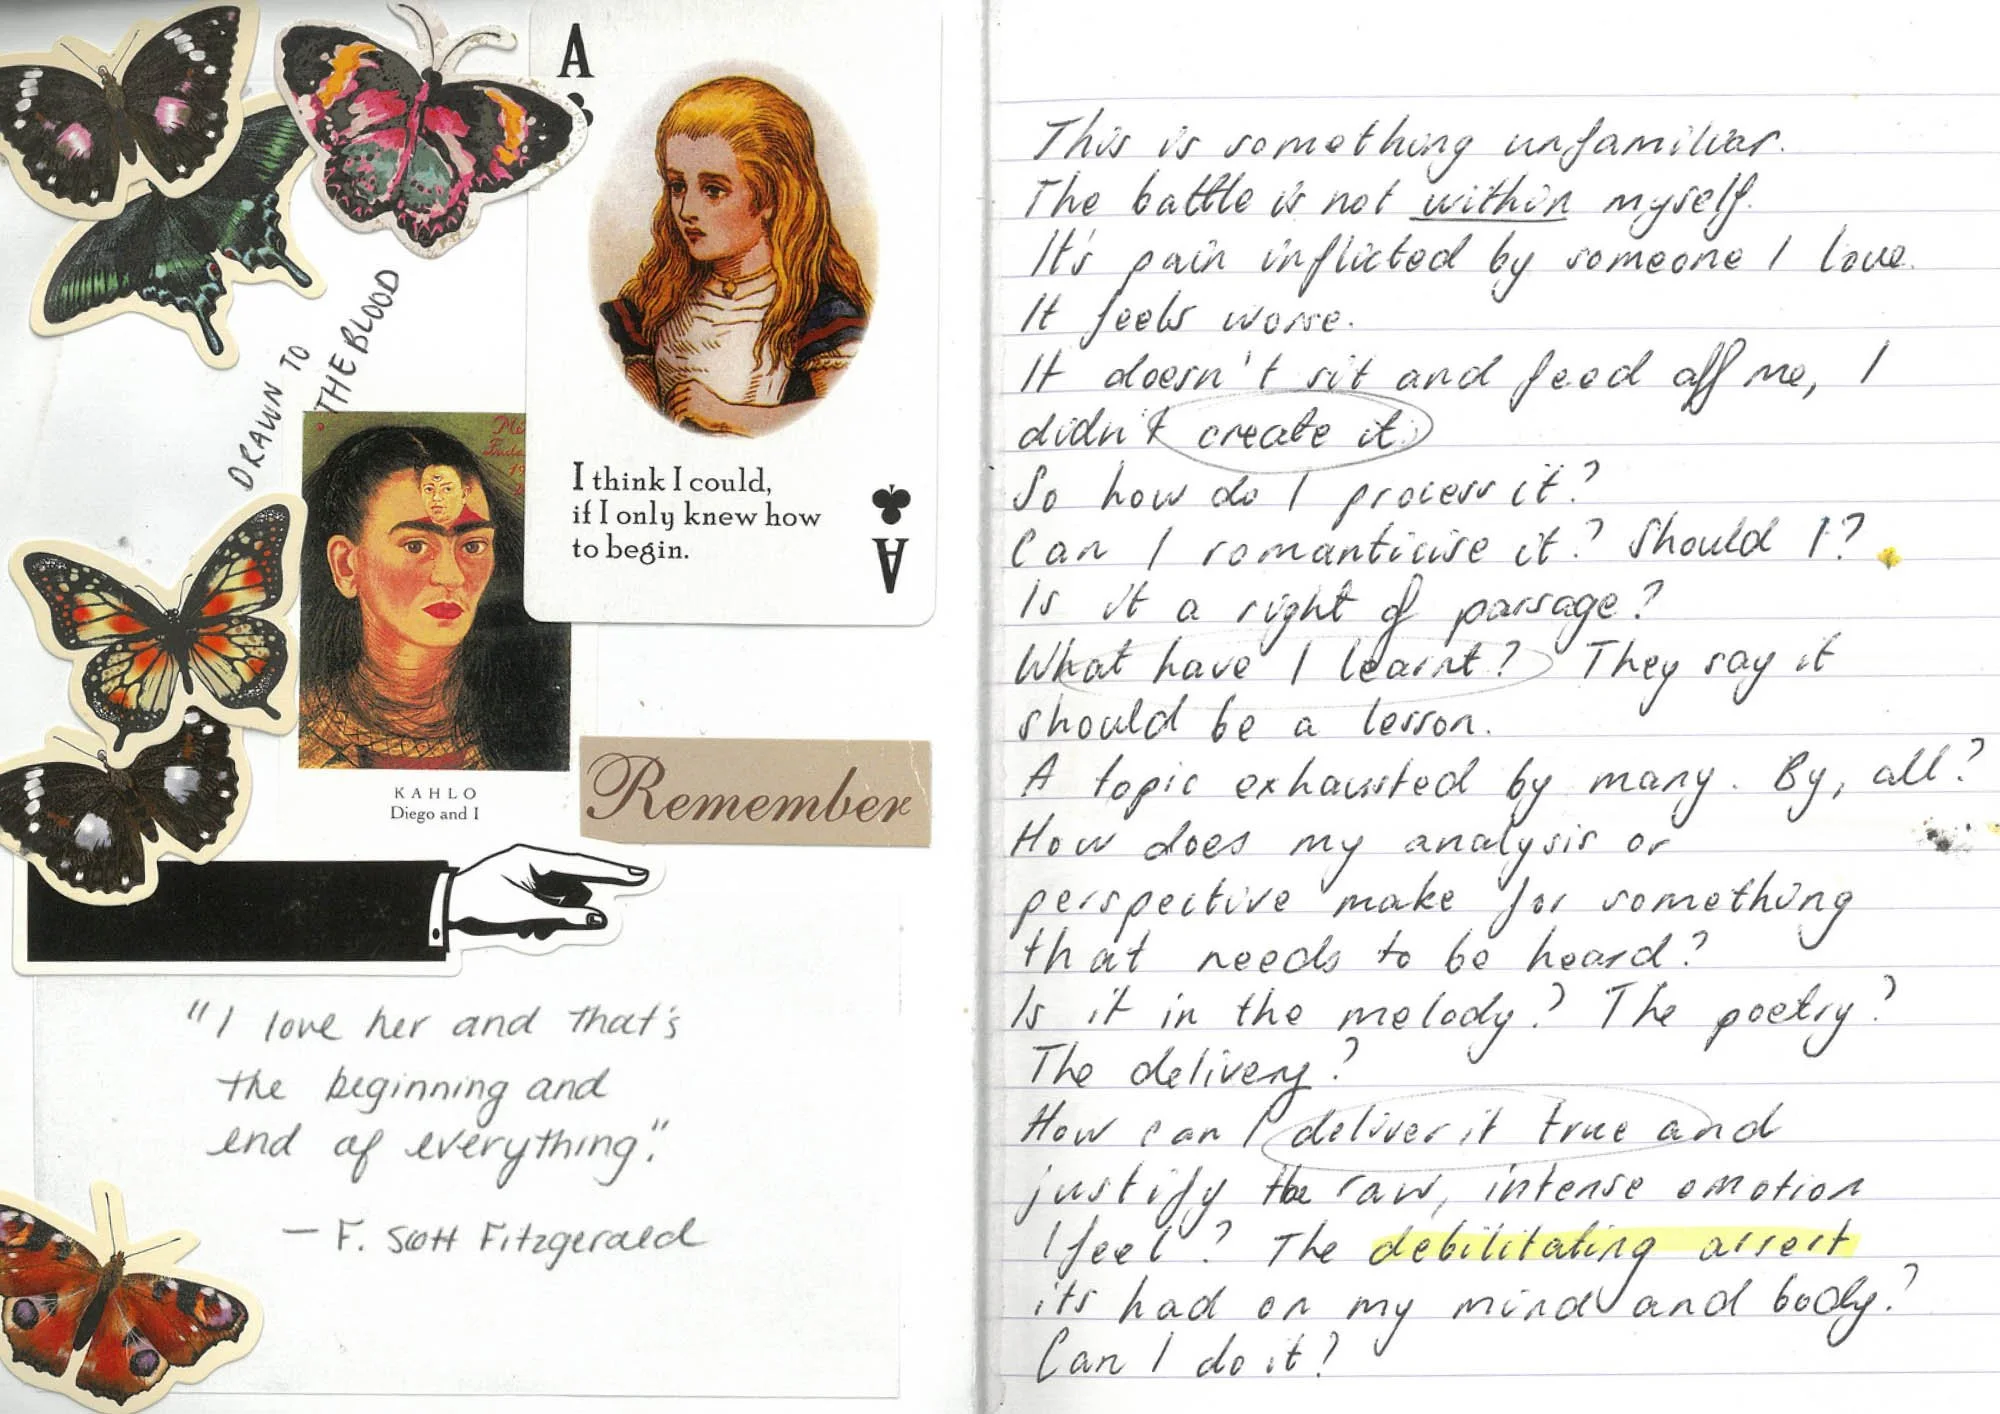 A
I think I could,
if I only knew how
to begin.
A
DRAWN TO
THE BLOOD
KAHLO
Diego and I
Remember
"I love her and that's
the beginning and
end of everything."
— F. Scott Fitzgerald
This is something unfamiliar.
The battle is not within myself.
It's pain inflicted by someone I love.
It feels worse.
It doesn't sit and feed off me, I
didn't create it.
So how do I process it?
Can I romanticise it? Should I?
Is it a right of passage?
What have I learnt? They say it
should be a lesson.
A topic exhausted by many. By, all?
How does my analysis or
perspective make for something
that needs to be heard?
Is it in the melody? The poetry?
The delivery?
How can I deliver it true and
justify the raw, intense emotion
I feel? The debilitating arrest
its had on my mind and body?
Can I do it?